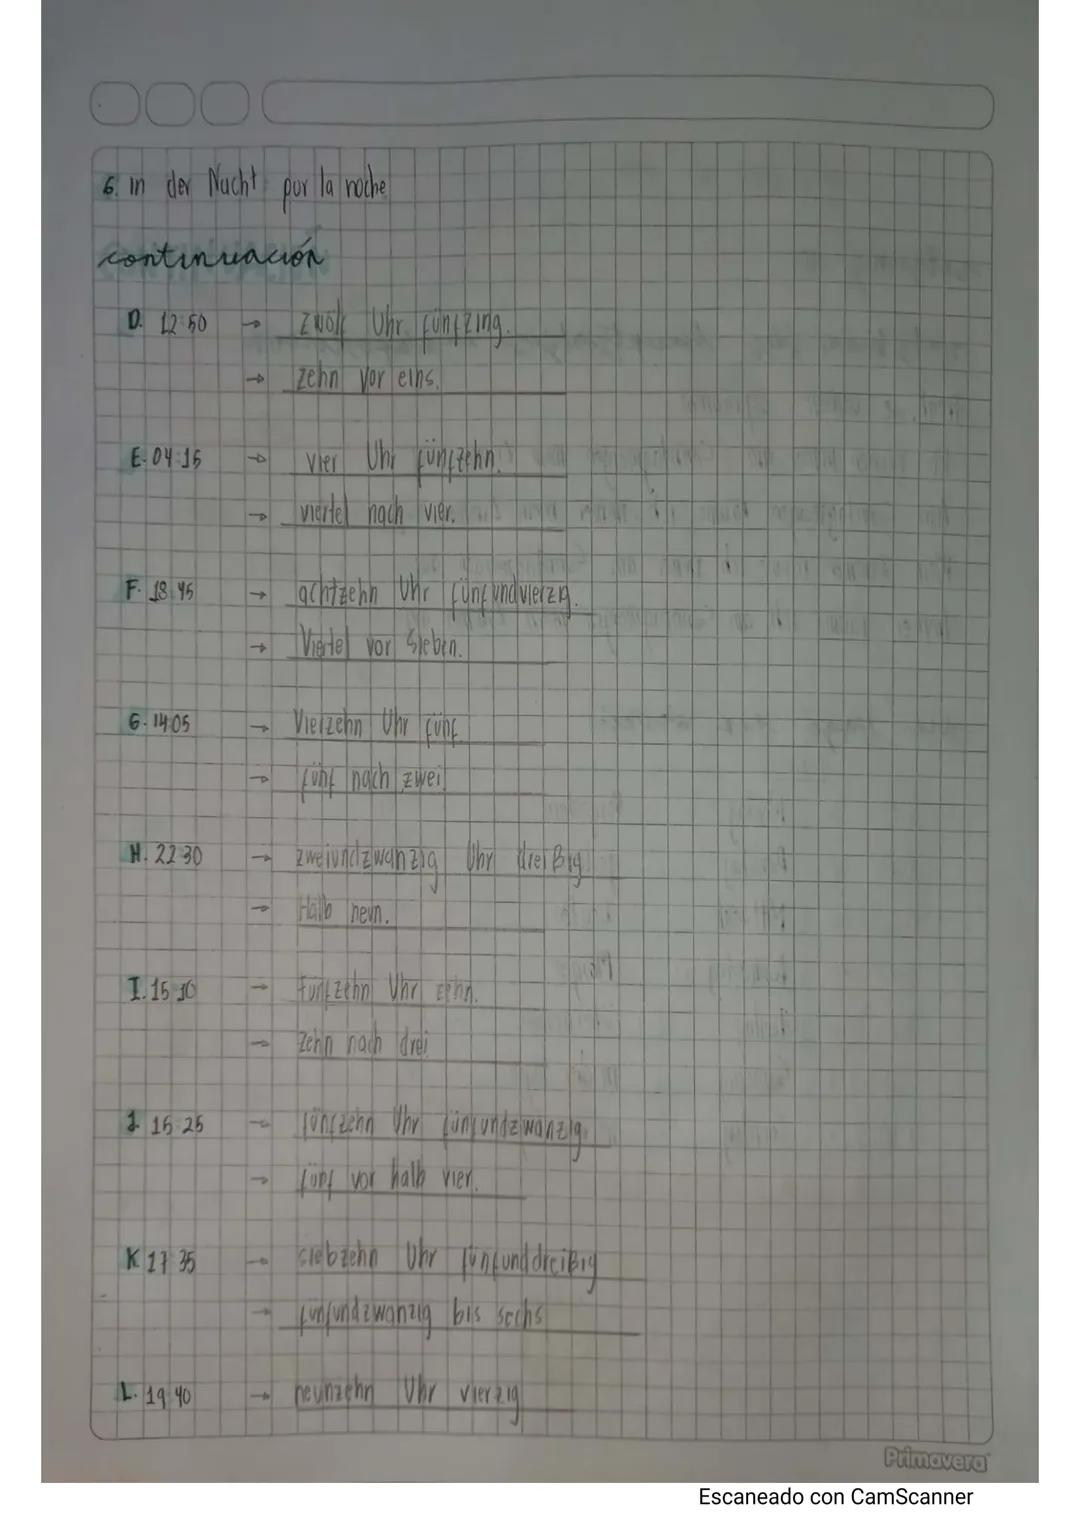 6. in der Nacht por la noche
continuación
D. 12:50 → zwölf Uhr fünfzing.
→ zehn vor eins.
E. 04:15 → vier Uhr fünfzehn.
→ viertel nach vier.
F. 18:45 → achtzehn Uhr fünfundvierzig.
→ Viertel vor sieben.
G. 14:05 → Vierzehn Uhr fünf
→ fünf nach zwei
H. 22:30 → zweiundzwanzig Uhr dreißig
→ Halb neun.
I. 15:10 → Fünfzehn Uhr zehn.
→ Zehn nach drei
J. 15:25 → fünfzehn Uhr fünfundzwanzig.
→ fünf vor halb vier.
K. 17:35 → siebzehn Uhr fünfunddreißig
→ fünfundzwanzig bis sechs
L. 19:40 → neunzehn Uhr vierzig
Primavera
Escaneado con CamScanner